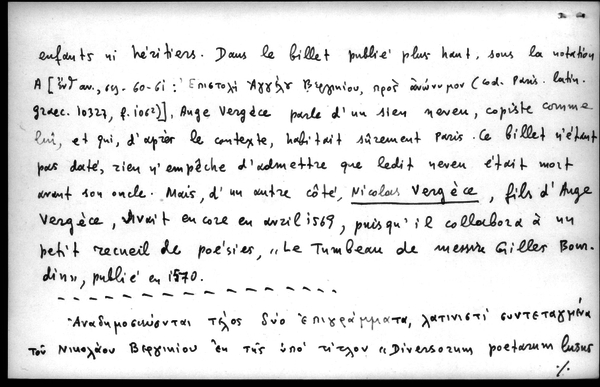 enfants ni héritiers. Dans le billet publié plus haut, sous la notation
A [ἔνθ' ἀν., σσ. 60-61: Ἐπιστολὴ Ἀγγέλου Βεργικίου, πρὸς ἀνώνυμον (cod. Paris. latin.
graec. 10327, f. 106²)], Ange Vergèce parle d'un sien neveu, copiste comme
lui, et qui, d'après le contexte, habitait sûrement Paris. Ce billet n'étant
pas daté, rien n'empêche d'admettre que ledit neveu était mort
avant son oncle. Mais, d'un autre côté, Nicolas Vergèce, fils d'Ange
Vergèce, vivait encore en avril 1569, puisqu'il collabora à un
petit recueil de poésies, «Le Tumbeau de messire Gilles Bour-
din», publié en 1570.
Ἀναδημοσιεύονται τέλος δύο ἐπιγράμματα, λατινιστὶ συντεταγμένα
τοῦ Νικολάου Βεργικίου ἐκ τῆς ὑπὸ τίτλον «Diversorum poetarum lusus
./.